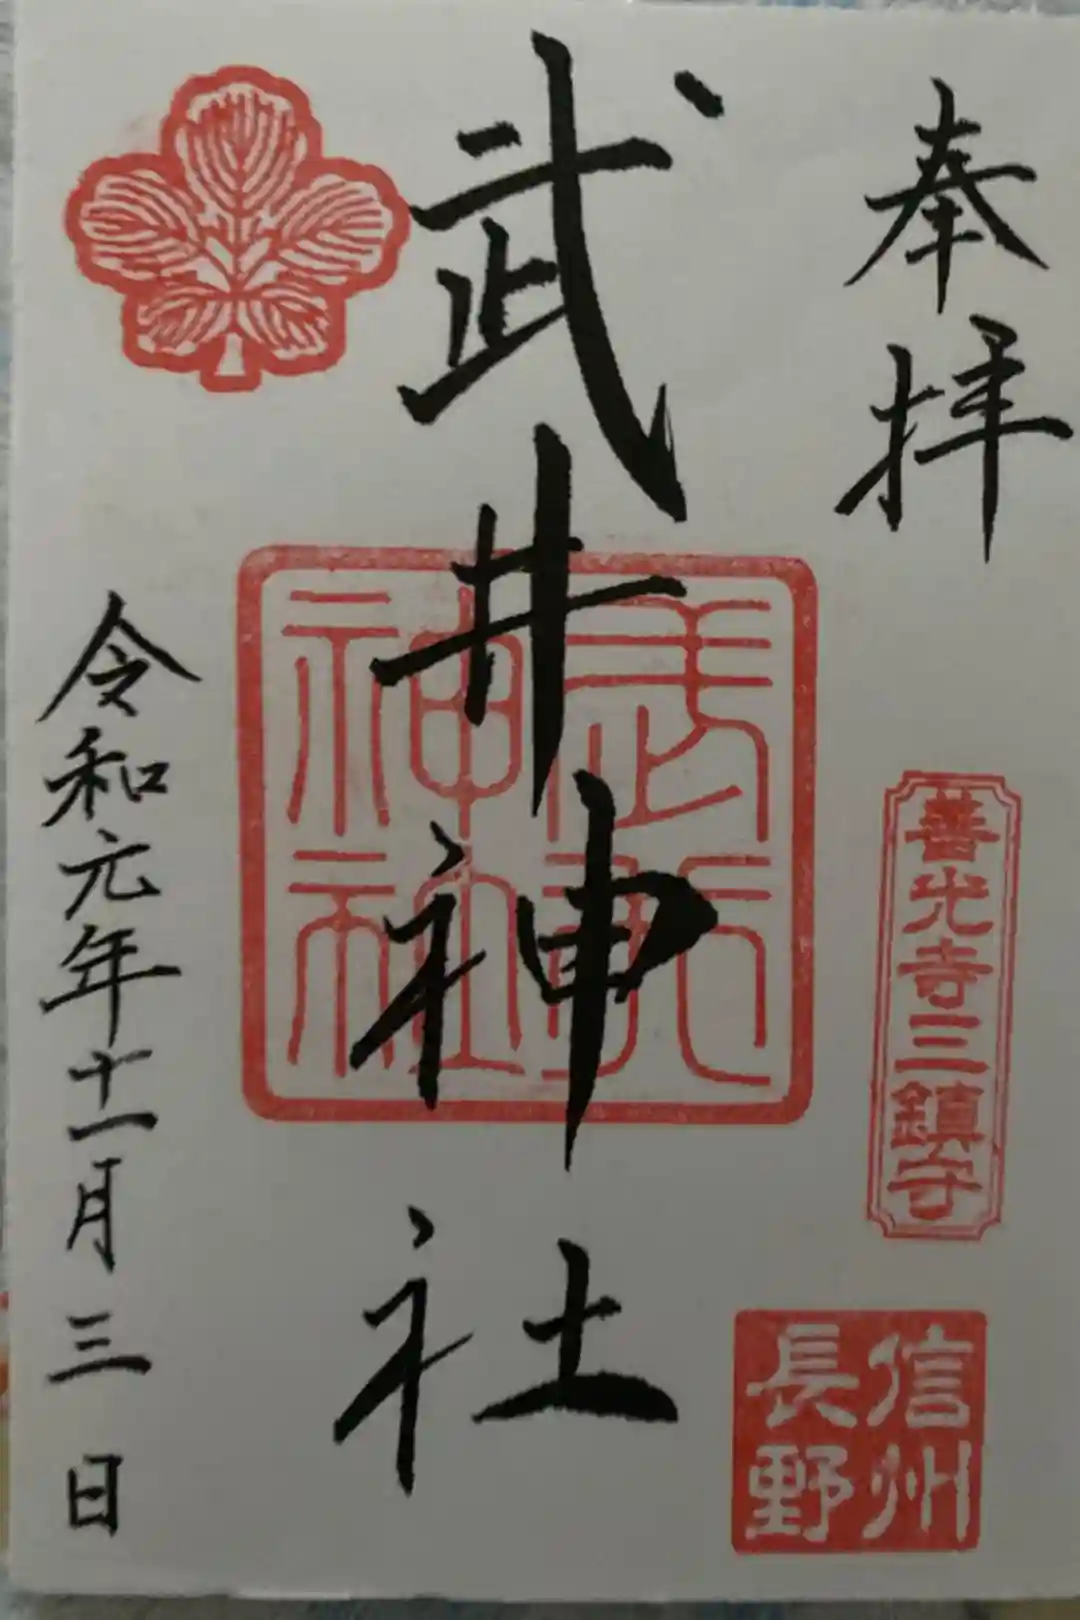 奉拝
善光寺三鎮守
信州
長野
武井神社
神社
令和元年十一月三日